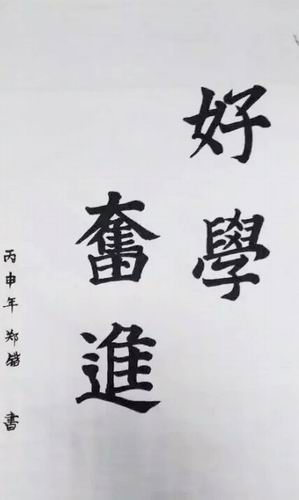 好學
奮進
丙申年 郑 書